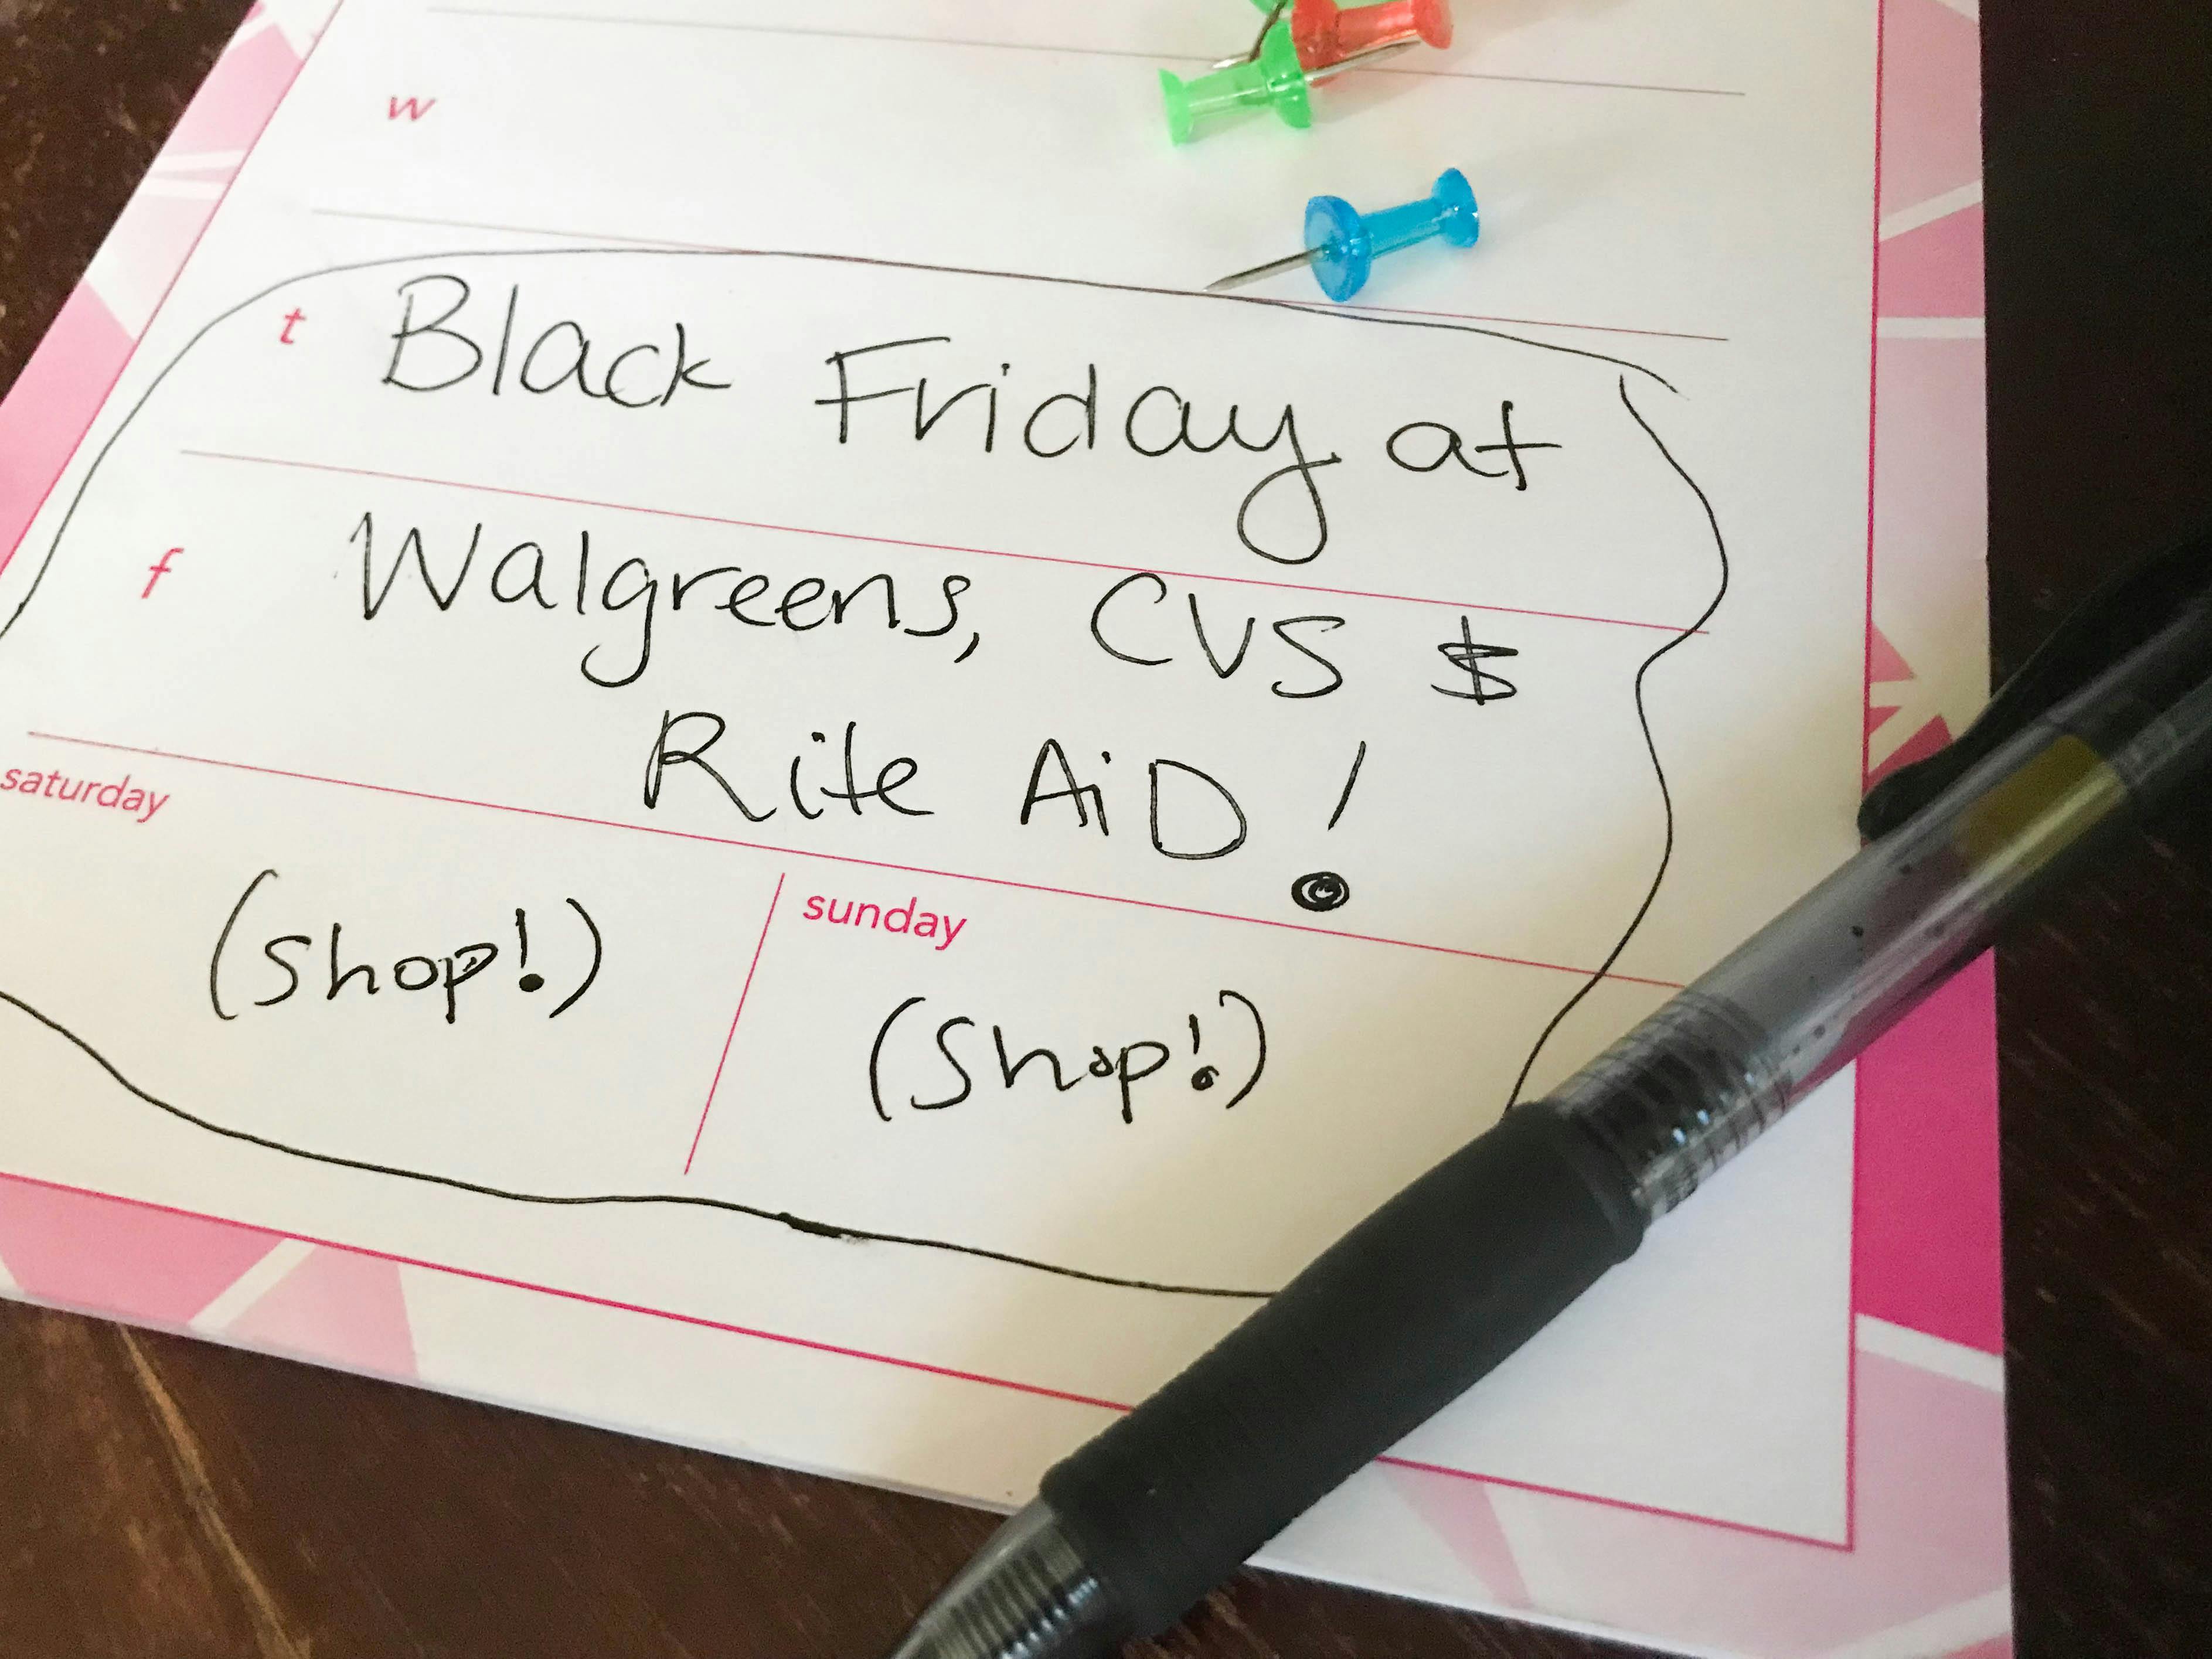 w
t Black Friday at
f Walgreens, CVS $
Rite AiD!
saturday
(Shop!)
sunday
(Shop!)